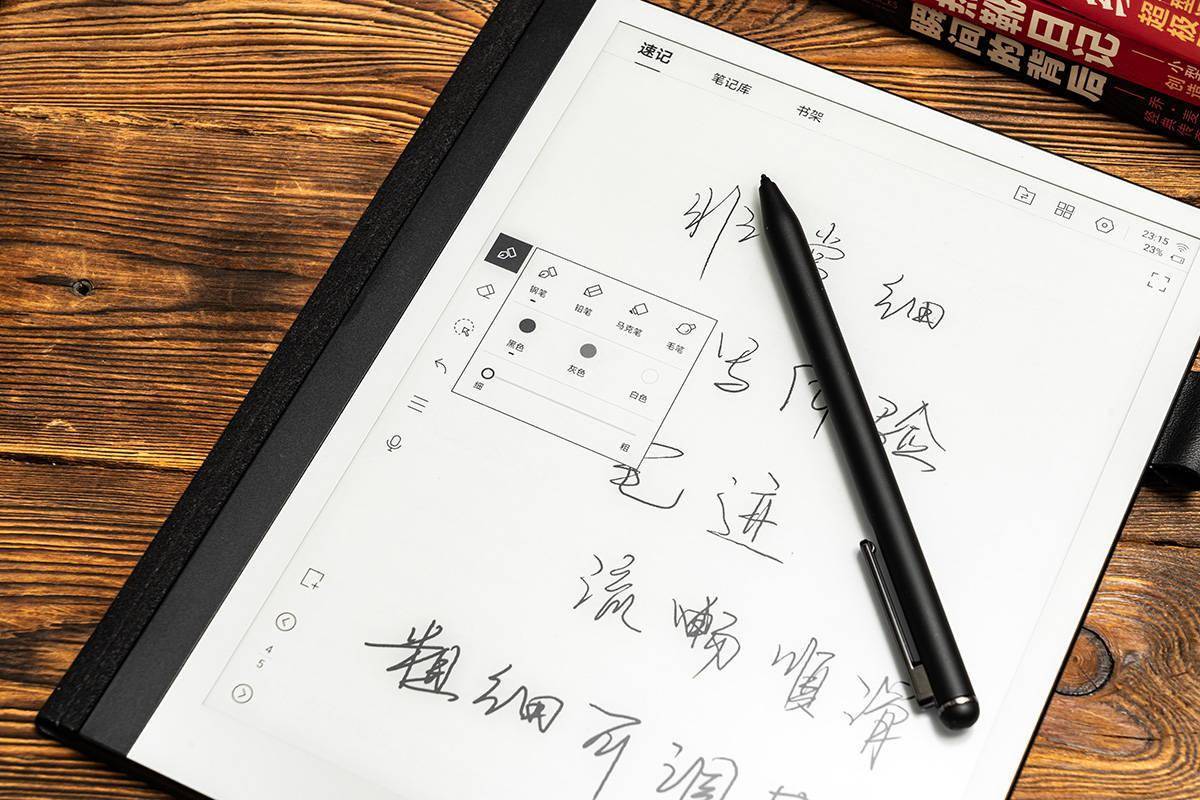 热靴日记
瞬间的背后
速记
笔记库
书架
23:15
23%
非常细
钢笔
铅笔
马克笔
毛笔
黑色
灰色
白色
细
粗
写体验
笔迹
流暢順滑
粗细可调
4
5